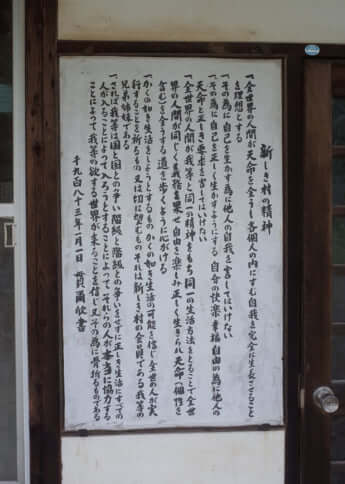 新しき村の精神
一、全世界の人間が天命を全うし各個人の内にすむ自我を完全に生長させること
を理想とする
一、その為に自己を生かす為に他人の自我を害してはいけない
一、その為に自己を正しく生かすようにする 自分の快楽 幸福 自由の為に他人の
天命と正しき要求を害してはいけない
一、全世界の人間が我等と同一の精神をもち同一の生活方法をとることで全世
界の人間が同じく義務を果せ自由を楽しみ正しく生きられ天命(個性を
含む)を全うする道を歩くように心がける
一、かくの如き生活をしようとするもの かくの如き生活の可能を信じ全世の人が実
行することを祈るもの又は切に望むもの それは新しき村の会員である 我等の
兄弟姉妹である
一、されば我等は国と国との争い 階級と階級との争いをせずに正しき生活にすべての
人が入ることによって 入ろうとすることによって それらの人が本当に協力する
ことによって我等の欲する世界が来ることを信じ又その為に骨折るものである
千九百八十三年一月一日